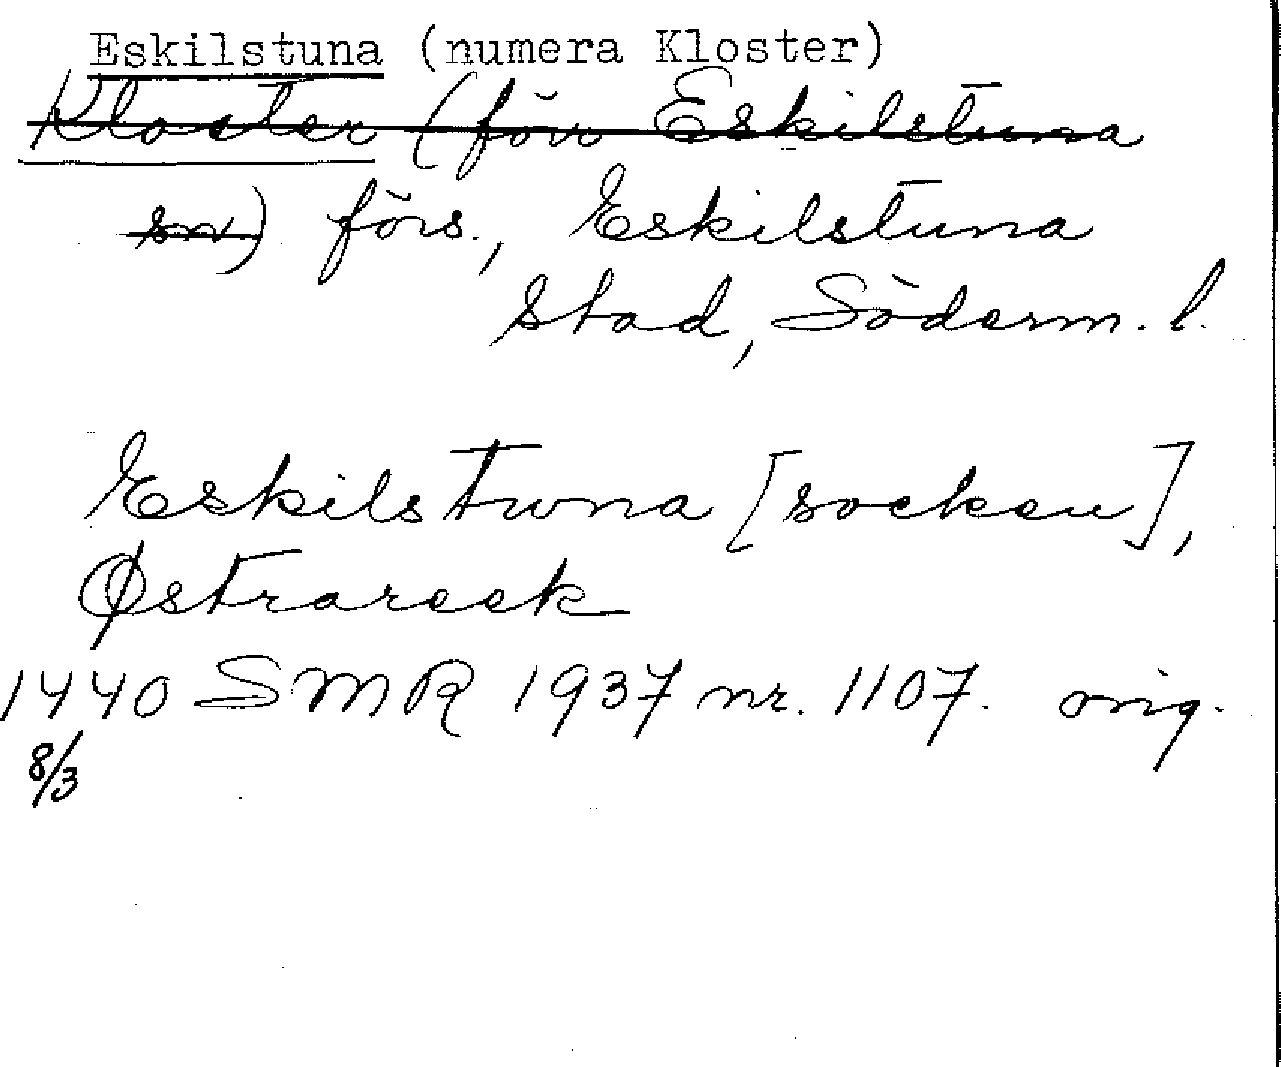 Eskilstuna (numera Kloster)
Kloster (förr Eskilstuna
sn) förs., Eskilstuna
stad, Söderm. l.
Eskilstuna [socken],
Østrareek
1440 SMR 1937 nr. 1107. orig.
8/3